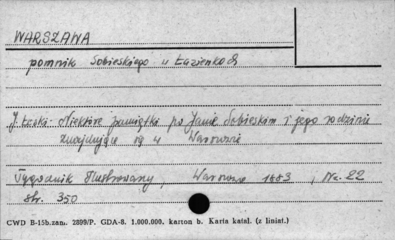 WARSZAWA
pomnik Sobieskiego w Łazienkach
J. Łoski - Niektóre pamiątki po Janie Sobieskim i jego rodzinie
znajdujące się w Warszawie
Tygodnik Illustrowany, Warszawa 1883, Nr. 22
str. 350
CWD B-15b.zam. 2899/P. GDA-8. 1.000.000. karton b. Karta katal. (z liniat.)